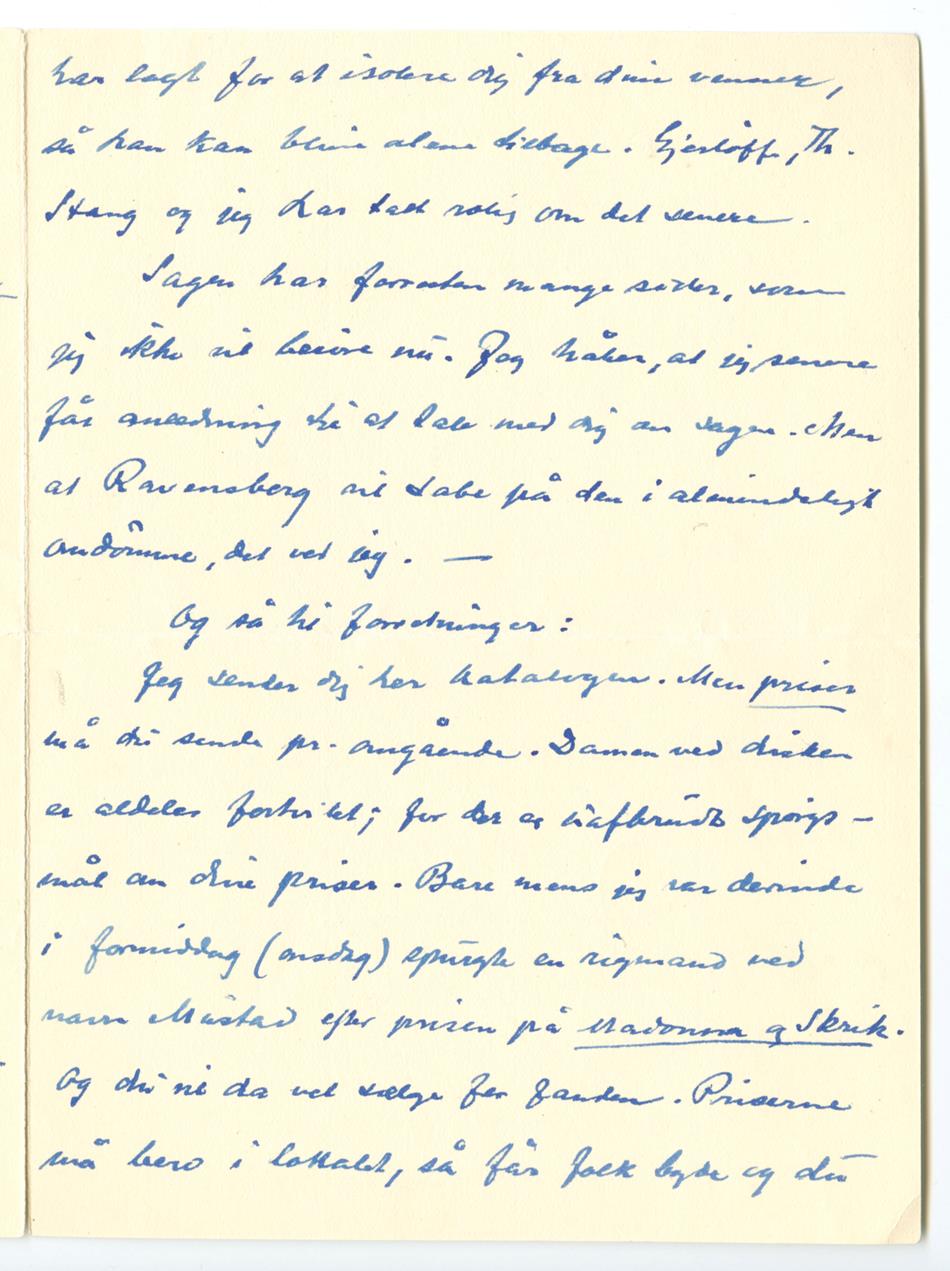 har lagt for at isolere dig fra dine venner,
så han kan blive alene tilbage. Gjerløff, Th.
Stang og jeg har talt rolig om det senere.
Sagen har foresten mange sider, som
jeg ikke vil berøre nu. Jeg håber, at jeg senere
får anledning til at tale med dig om sagen. Men
at Ravensberg vil tabe på den i almindeligt
omdömme, det ved jeg. —
Og så til forretninger:
Jeg sender dig her katalogen. Men priser
må du sende pr. omgående. Damen ved disken
er aldeles fortvilet; for der er uafbrudt spörgs-
mål om dine priser. Bare mens jeg var derinde
i formiddag (onsdag) spurgte en rigmand ved
navn Mustad efter prisen på Madonna og Skrik.
Og du vil da vel sælge for fanden. Priserne
må bero i lokalet, så får folk byde og du